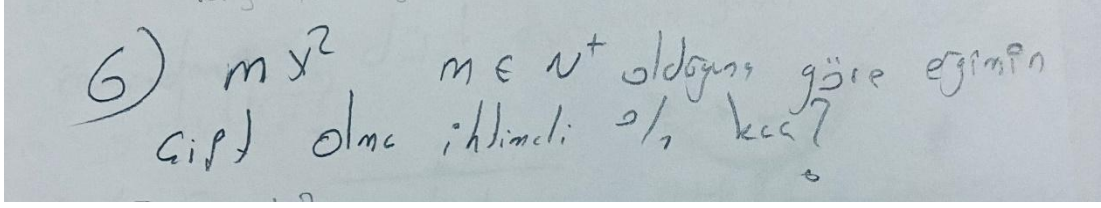 6) mx² m ∈ N⁺ olduğuna göre eğimin
çift olma ihtimali % kaç?